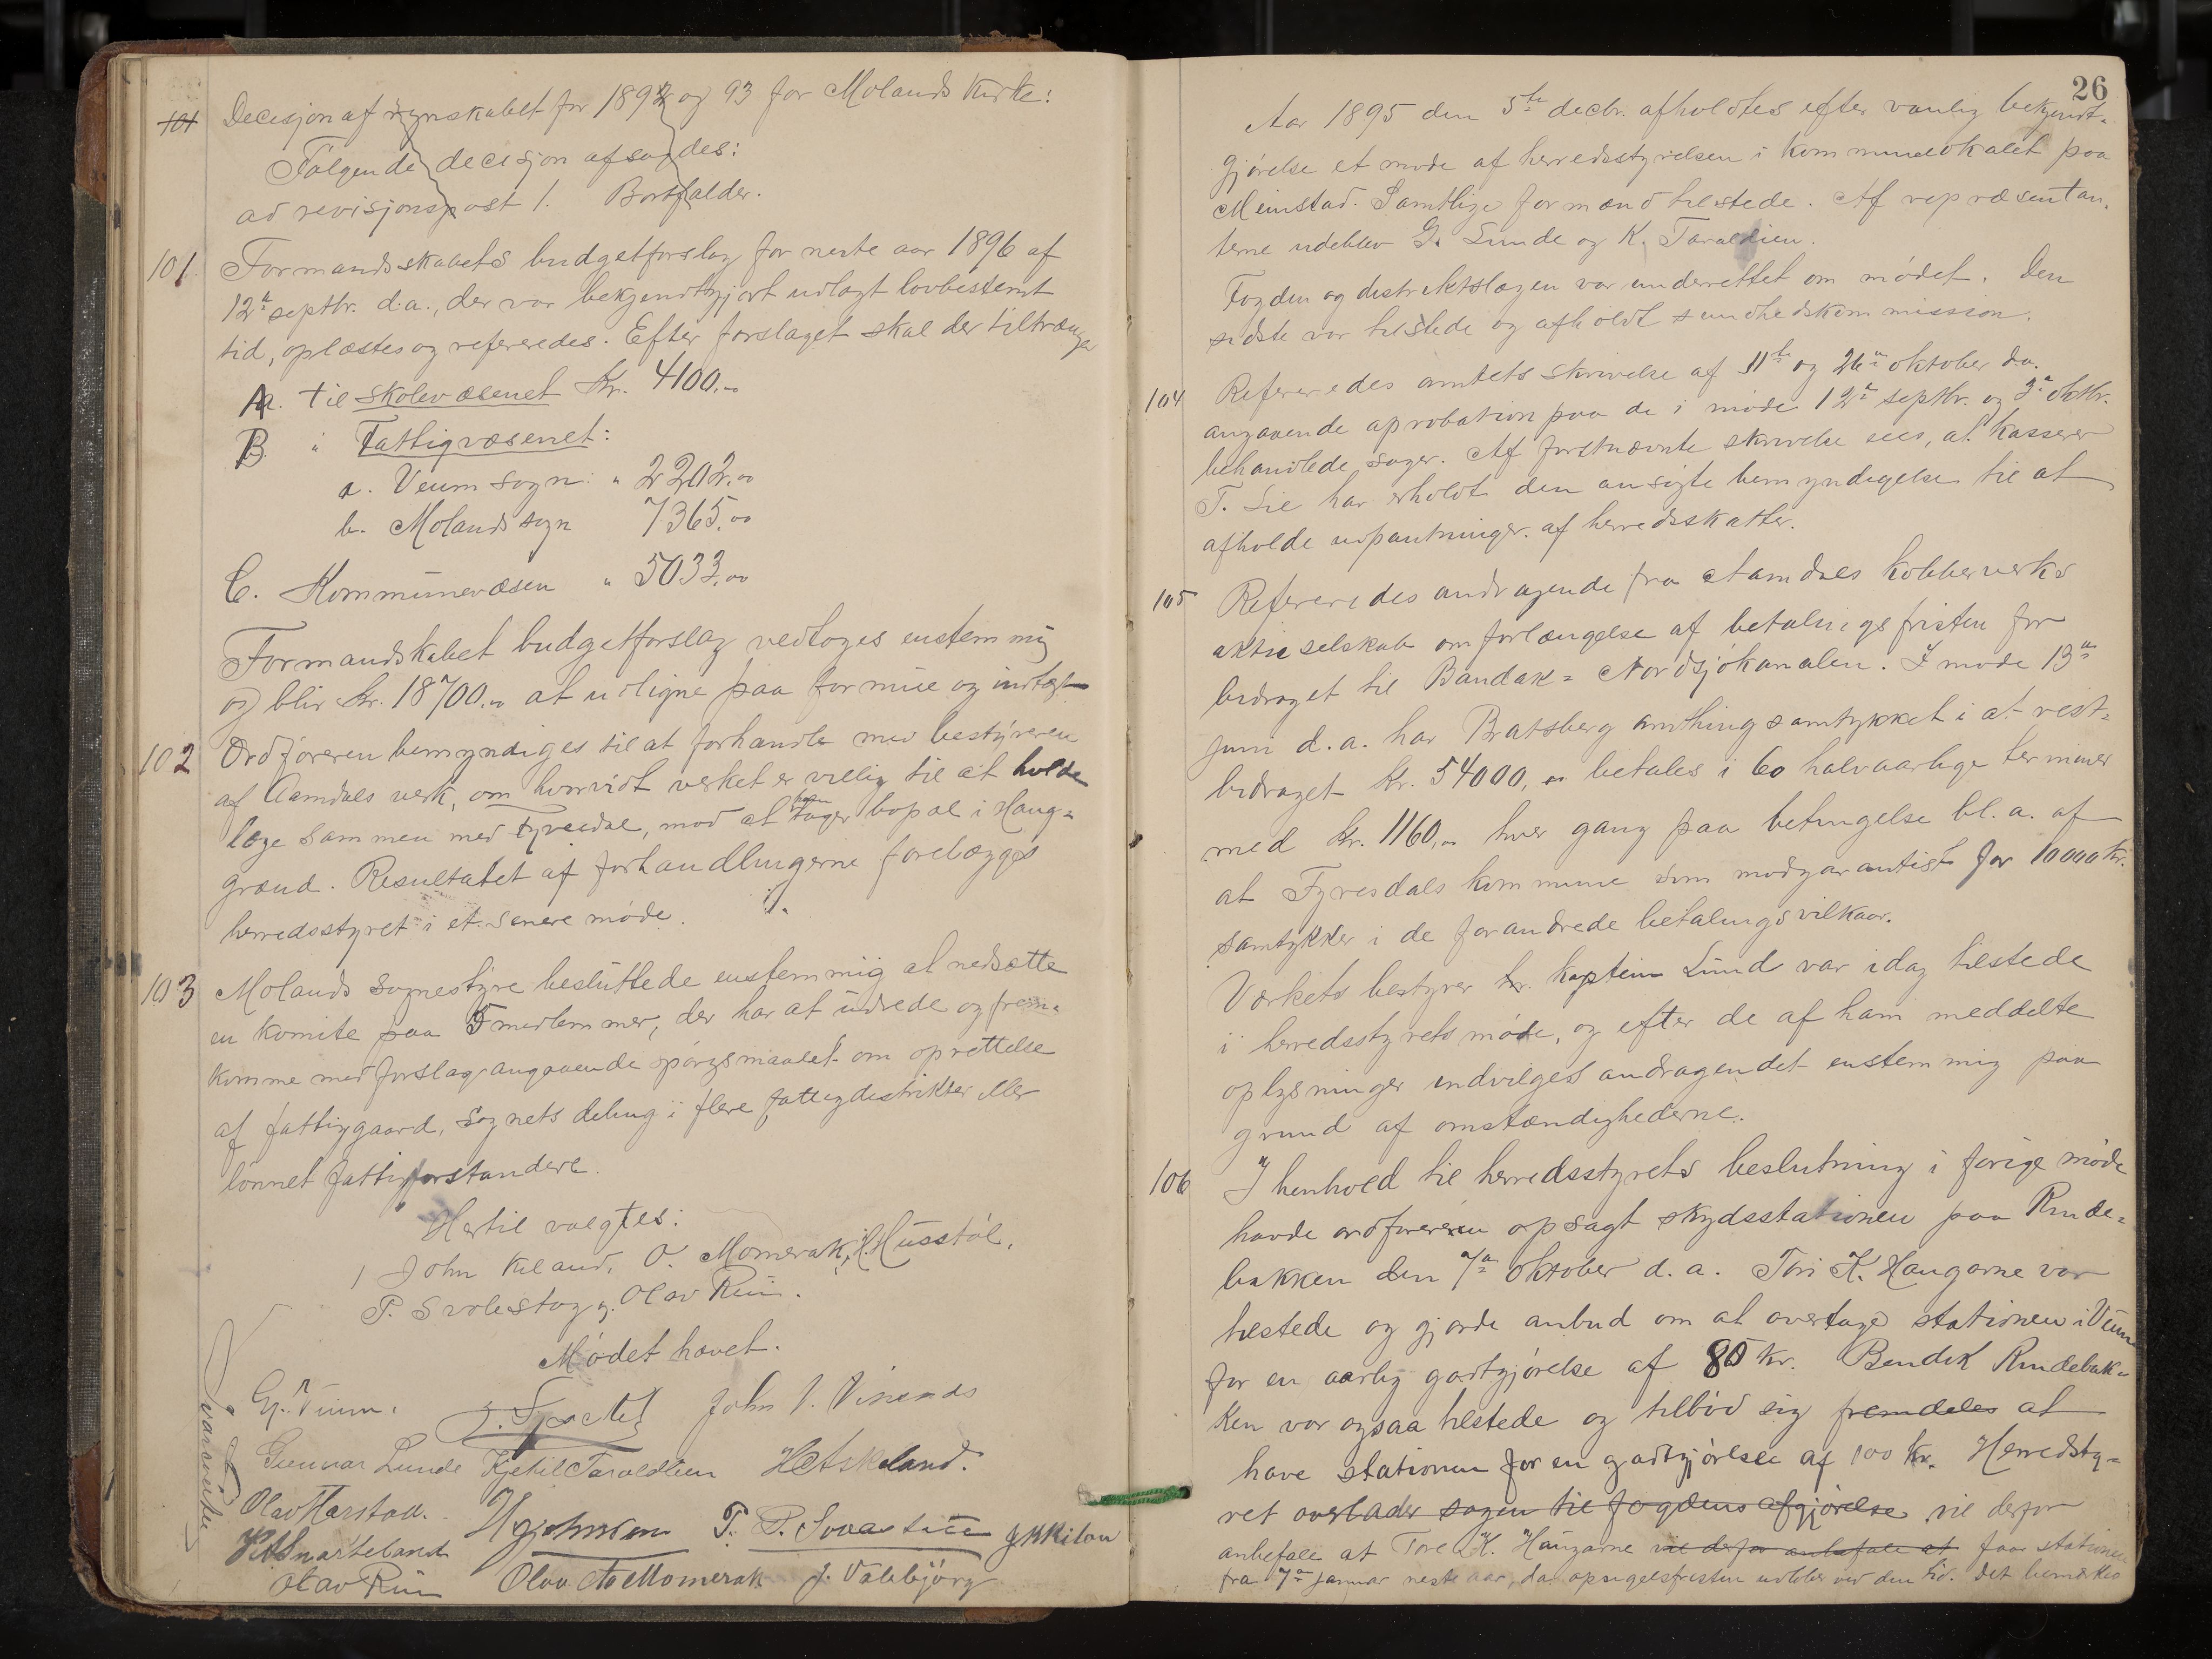 101 Decisjon af regnskabet for 1892 og 93 for Molands Kirke:
Følgende decisjon afsagdes:
ad revisjonspost 1. Bortfalder.
101 Formandsskabets budgetforslag for neste aar 1896 af
12te septbr. d.a., der var bekjendtgjort udlagt lovbestemt
tid, oplæstes og refereredes. Efter forslaget skal der tiltrænges
A. til skolevæsenet Kr. 4100,00
B. " Fattigvæsenet:
a. Veum sogn: " 2202,00
b. Molands sogn 7365,00
C. Kommunevæsen " 5033,00
Formandskabet budgetforslag vedtoges enstemmig
og blir Kr. 18700,00 at udligne paa formue og indtægt
102 Ordføreren bemyndiges til at forhandle med bestyreren
af Aamdals verk, om hvorvidt verket er villig til at holde
læge sammen med Fyresdal, mod at han tager bopæl i Haug-
grænd. Resultatet af forhandlingerne forelægges
herredsstyret i et senere møde.
103 Molands sognestyre besluttede enstemmig at nedsætte
en komite paa 5 medlemmer, der har at udrede og frem-
komme med forslag angaaende spørgsmaalet om oprettelse
af fattiggaard, sognets deling i flere fattigdistrikter eller
lønnet fattigforstandere.
Hertil valgtes:
John Kiland, O. Momerak, H. Husstøl,
P. Svolestog og Olav Rui.
Mødet hævet.
G. Veum. John J. Vinsnes
Gunnar Lunde Kjetil Taraldlien H Askeland.
Olav Harstad. T. P. Svaastue
H A Snarteland
Olav Rui Olav A Momerak J. Valebjørg
26
Aar 1895 den 5te decbr. afholdtes efter vanlig bekjendt-
gjørelse et møde af herredsstyrelsen i kommunelokalet paa
Meinstad. Samtlige formænd tilstede. Af repræsentan-
terne udeblev G. Lunde og K. Taraldlien.
Fogden og distriktslægen var underrettet om mødet. Den
sidste var tilstede og afholdt sundhedskommission.
104 Refereredes amtets skrivelse af 11te og 26de oktober d.a.
angaaende aprobation paa de i møde 12te septbr. og 3die oktbr.
behandlede sager. Af førstnævnte skrivelse sees, at kasserer
T. Lie har erholdt den ansøgte bemyndigelse til at
afholde udpantninger af herredsskatter.
105 Refereredes andragende fra Aamdals kobberverks
aktieselskab om forlængelse af betalingsfristen for
bidraget til Bandak-Nordsjøkanalen. I møde 13de
juni d.a. har Bratsberg amtthing samtykket i at rest-
bidraget kr. 54000,00 betales i 60 halvaarlige terminer
med kr. 1160,00 hver gang paa betingelse bl.a. af
at Fyresdals kommune som modgarantist for 10000 kr.
samtykker i de forandrede betalingsvilkaar.
Verkets bestyrer hr. kaptein Lund var idag tilstede
i herredsstyrets møde, og efter de af ham meddelte
oplysninger indvilges andragendet enstemmig paa
grund af omstændighederne.
106 I henhold til herredsstyrets beslutning i forige møde
havde ordføreren opsagt skydsstationen paa Rinde-
bakken den 7de oktober d.a. Tor K. Haugarne var
tilstede og gjorde anbud om at overtage stationen i Veum
for en aarlig godtgjørelse af 80 kr. Bendik Rindebak-
ken var ogsaa tilstede og tilbød sig fremdeles at
have stationen for en godtgjørelse af 100 kr. Herredsty-
ret overlader sagen til fogdens afgjørelse vil derfor
anbefale at Tore K. Haugarne vil derfor anbefale at faar stationen
fra 7de januar neste aar, da opsigelsfristen udløber ved den tid. Det bemærkes